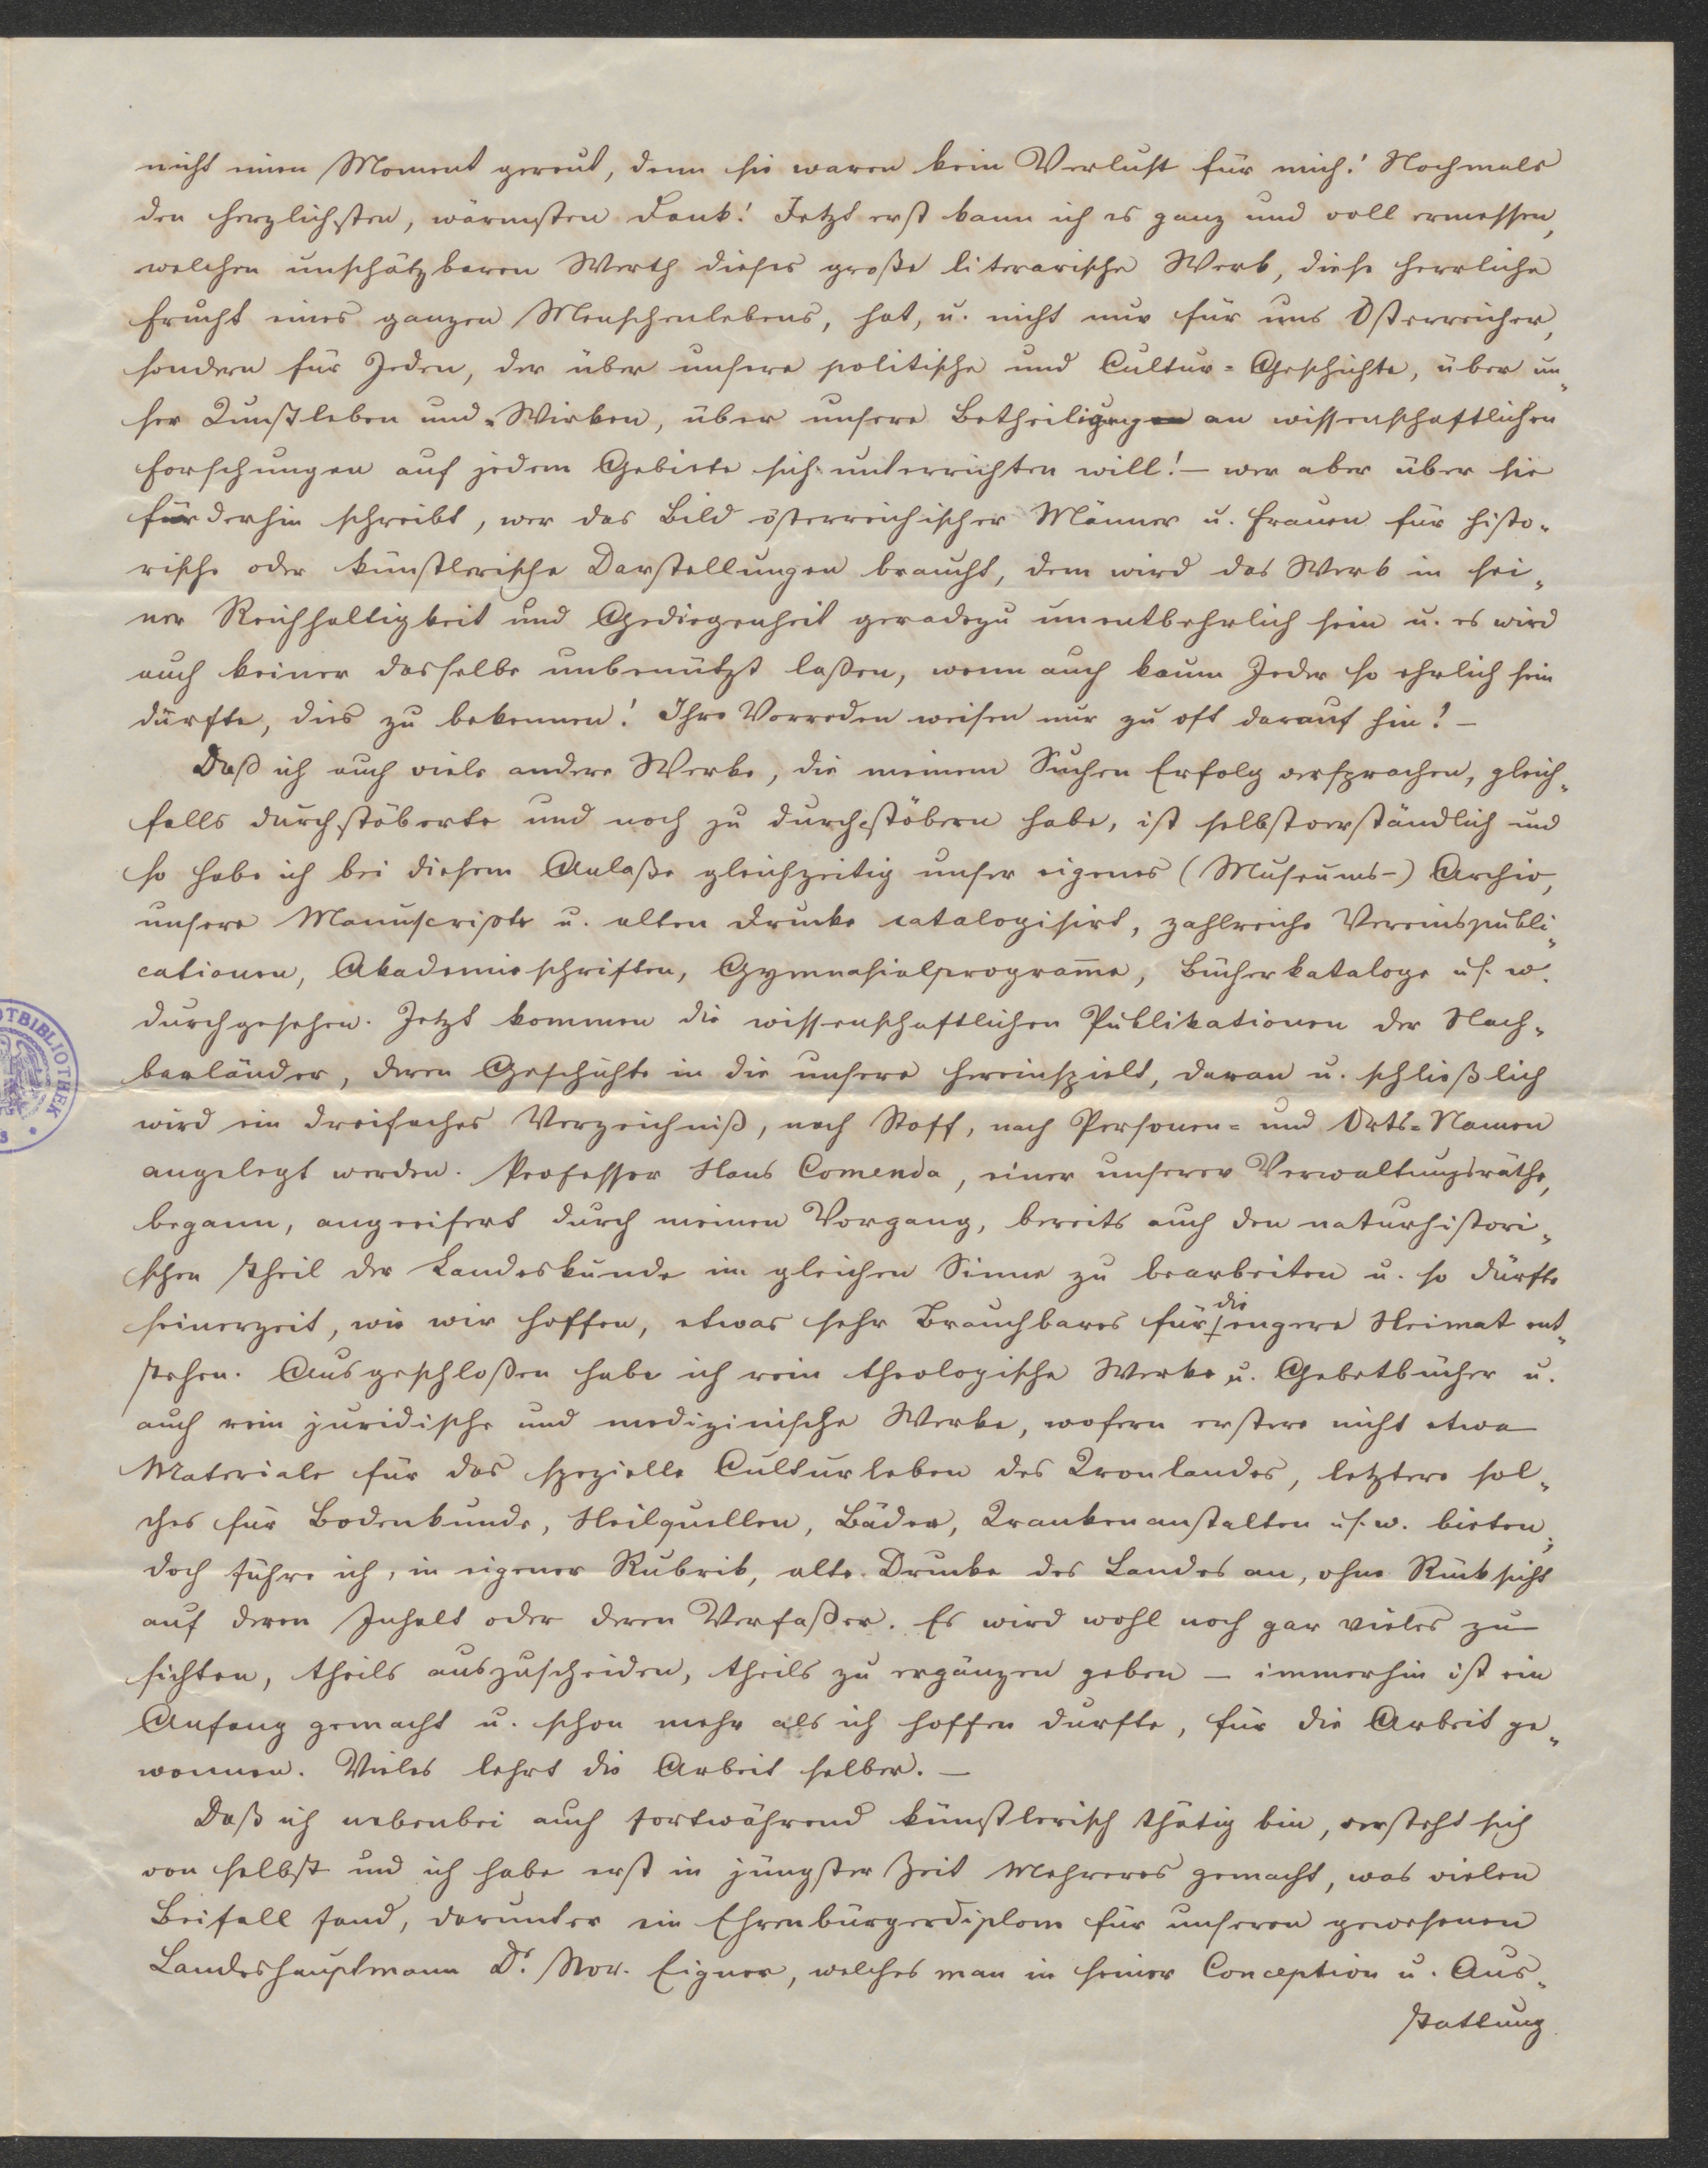 nicht einen Moment gereut, denn sie waren kein Verlust für mich! Nochmals
den herzlichsten, wärmsten Dank! Jetzt erst kann ich es ganz und voll ermessen,
welchen unschätzbaren Werth dieses große literarische Werk, diese herrliche
Frucht eines ganzen Menschenlebens, hat, u. nicht nur für uns Österreicher,
sondern für Jeden, der über unsere politische und Cultur-Geschichte, über un-
ser Kunstleben und -Wirken, über unsere Betheiligung an wissenschaftlichen
Forschungen auf jedem Gebiete sich unterrichten will! – wer aber über sie
fürderhin schreibt, wer das Bild österreichischer Männer u. Frauen für histo-
rische oder künstlerische Darstellungen braucht, dem wird das Werk in sei-
ner Reichhaltigkeit und Gediegenheit geradezu unentbehrlich sein u. es wird
auch keiner dasselbe unbenützt laßen, wenn auch kaum Jeder so ehrlich sein
dürfte, dies zu bekennen! Ihre Vorreden weisen nur zu oft darauf hin! –
Daß ich auch viele andere Werke, die meinem Suchen Erfolg versprachen, gleich-
falls durchstöberte und noch zu durchstöbern habe, ist selbstverständlich und
so habe ich bei diesem Anlaße gleichzeitig unser eigenes (Museums-) Archiv,
unsere Manuscripte u. alten Drucke catalogisirt, zahlreiche Vereinspubli-
cationen, Akademieschriften, Gymnasialprogram̅e, Bücherkataloge u.s.w.
durchgesehen. Jetzt kommen die wissenschaftlichen Publikationen der Nach-
barländer, deren Geschichte in die unsere hereinspielt, daran u. schließlich
wird ein dreifaches Verzeichniß, nach Stoff, nach Personen- und Orts-Namen
angelegt werden. Professor Hans Comenda, einer unserer Verwaltungsräthe,
begann, angeeifert durch meinen Vorgang, bereits auch den naturhistori-
schen Theil der Landeskunde im gleichen Sinne zu bearbeiten u. so dürfte
seinerzeit, wie wir hoffen, etwas sehr Brauchbares für die engere Heimat ent-
stehen. Ausgeschloßen habe ich rein theologische Werke u. Gebetbücher u.
auch rein juridische und medizinische Werke, wofern erstere nicht etwa
Materiale für das spezielle Culturleben des Kronlandes, letztere sol-
ches für Bodenkunde, Heilquellen, Bäder, Krankenanstalten u.s.w. bieten;
doch führe ich, in eigener Rubrik, alte Drucke des Landes an, ohne Rücksicht
auf deren Inhalt oder deren Verfaßer. Es wird wohl noch gar vieles zu
sichten, theils auszuscheiden, theils zu ergänzen geben – immerhin ist ein
Anfang gemacht u. schon mehr als ich hoffen durfte, für die Arbeit ge-
wonnen. Vieles lehrt die Arbeit selber. –
Daß ich nebenbei auch fortwährend künstlerisch thätig bin, versteht sich
von selbst und ich habe erst in jüngster Zeit Mehreres gemacht, was vielen
Beifall fand, darunter ein Ehrenbürgerdiplom für unseren gewesenen
Landeshauptmann Dr. Mor. Eigner, welches man in seiner Conception u. Aus-
stattung
OTBIBLIOTHEK